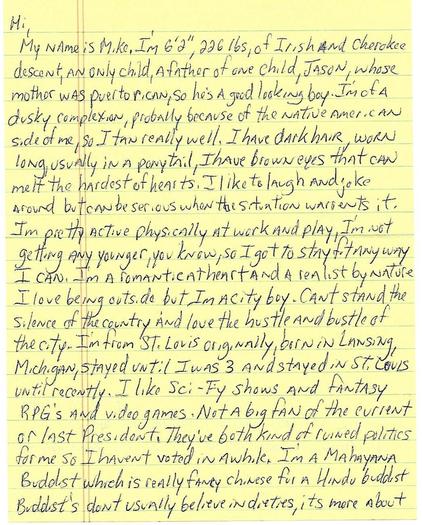 Hi,
My name is Mike. I'm 6'2", 226 lbs, of Irish and Cherokee
descent, an only child, a father of one child, Jason, whose
mother was puertorican, so he's a good looking boy. I'm of a
dusky complexion, probally because of the native american
side of me, so I tan really well. I have dark hair, worn
long, usually in a ponytail, I have brown eyes that can
melt the hardest of hearts. I like to laugh and joke
around but can be serious when the situation warrents it.
I'm pretty active physically at work and play, I'm not
getting any younger, you know, so I got to stay fit any way
I can. I'm a romantic at heart and a realist by nature
I love being outside but I'm a city boy. Cant stand the
silence of the country and love the hustle and bustle of
the city. I'm from St. Louis originally, born in Lansing,
Michigan, stayed until I was 3 and stayed in St. Louis
until recently. I like Sci-Fy shows and fantasy
RPG's and video games. Not a big fan of the current
or last President. They've both kind of ruined politics
for me so I havent voted in awhile. I'm a Mahayana
Buddist which is really fancy chinese for a Hindu buddist
Buddist's dont usually believe in dieties, its more about